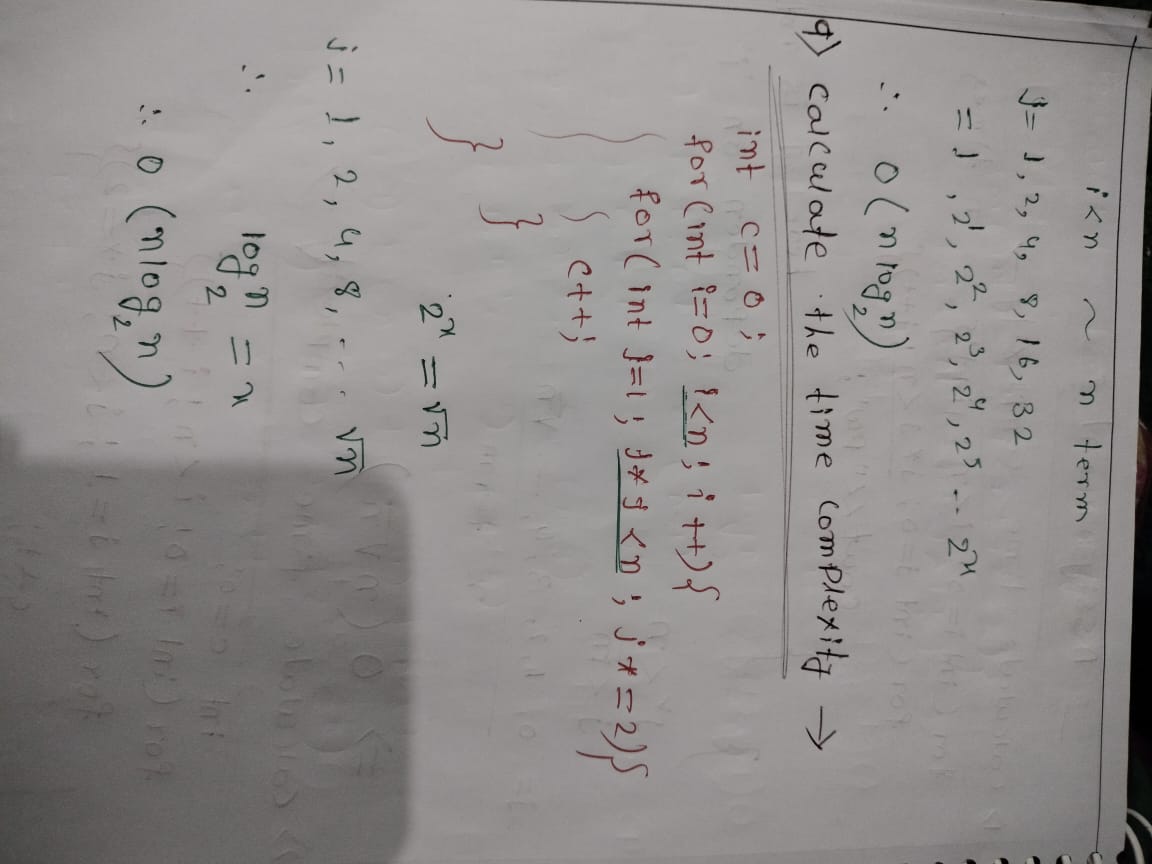 i<n ~ n term
j = 1, 2, 4, 8, 16, 32
= 1, 2¹, 2², 2³, 2⁴, 2⁵ -- 2ˣ
∴ O(n log₂n)
q) calculate the time complexity →
int c=0;
for(int i=0; i<n; i++){
for(int j=1; j*j<n; j*=2){
{ c++;
}
}
2ˣ = √n
j = 1, 2, 4, 8, --- √n
∴ log₂n = x
∴ O (n log₂ n)